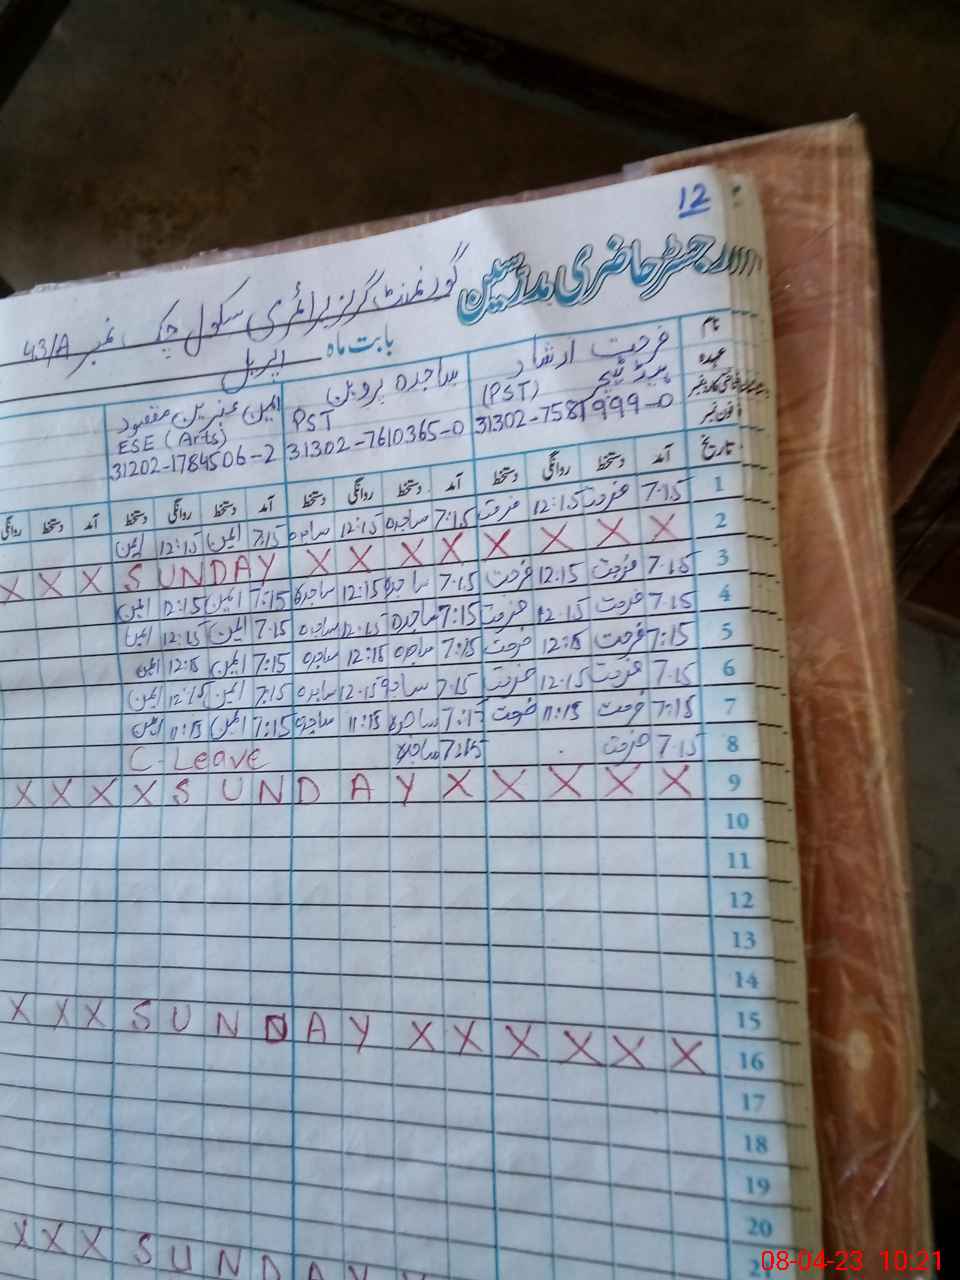 12
رجسٹر حاضری مدرسین
گورنمنٹ گرلز پرائمری سکول چک نمبر 43/A
بابت ماہ اپریل
نام فرحت ارشاد ساجدہ پروین
عہدہ ہیڈ ٹیچر (PST) PST ESE (Arts)
31302-7581999-0 31302-7610365-0 31202-1784506-2
فون نمبر
تاریخ آمد دستخط روانگی دستخط آمد دستخط روانگی دستخط آمد دستخط روانگی دستخط آمد دستخط روانگی
1 7.15 فرحت 12:15 فرحت 7:15 ساجدہ 12:15 ساجدہ 7:15 ایمن 12:15 ایمن
2 X X X X X X X X SUNDAY X X X
3 7.15 فرحت 12.15 فرحت 7:15 ساجدہ 12:15 ساجدہ 7:15 ایمن 12:15 ایمن
4 7.15 فرحت 12.15 فرحت 7:15 ساجدہ 12.15 ساجدہ 7.15 ایمن 12:15 ایمن
5 7:15 فرحت 12:15 فرحت 7:15 ساجدہ 12:15 ساجدہ 7:15 ایمن 12:15 ایمن
6 7.15 فرحت 12.15 فرحت 7.15 ساجدہ 12.15 ساجدہ 7.15 ایمن 12:15 ایمن
7 7:15 فرحت 11:15 فرحت 7:15 ساجدہ 11:15 ساجدہ 7:15 ایمن 11:15 ایمن
8 7.15 فرحت 7:15 ساجدہ C-Leave
9 X X X X SUNDAY X X X X X
10
11
12
13
14
15
16 X X X SUNDAY X X X X X X
17
18
19
20
X X X SUNDAY
08-04-23 10:21